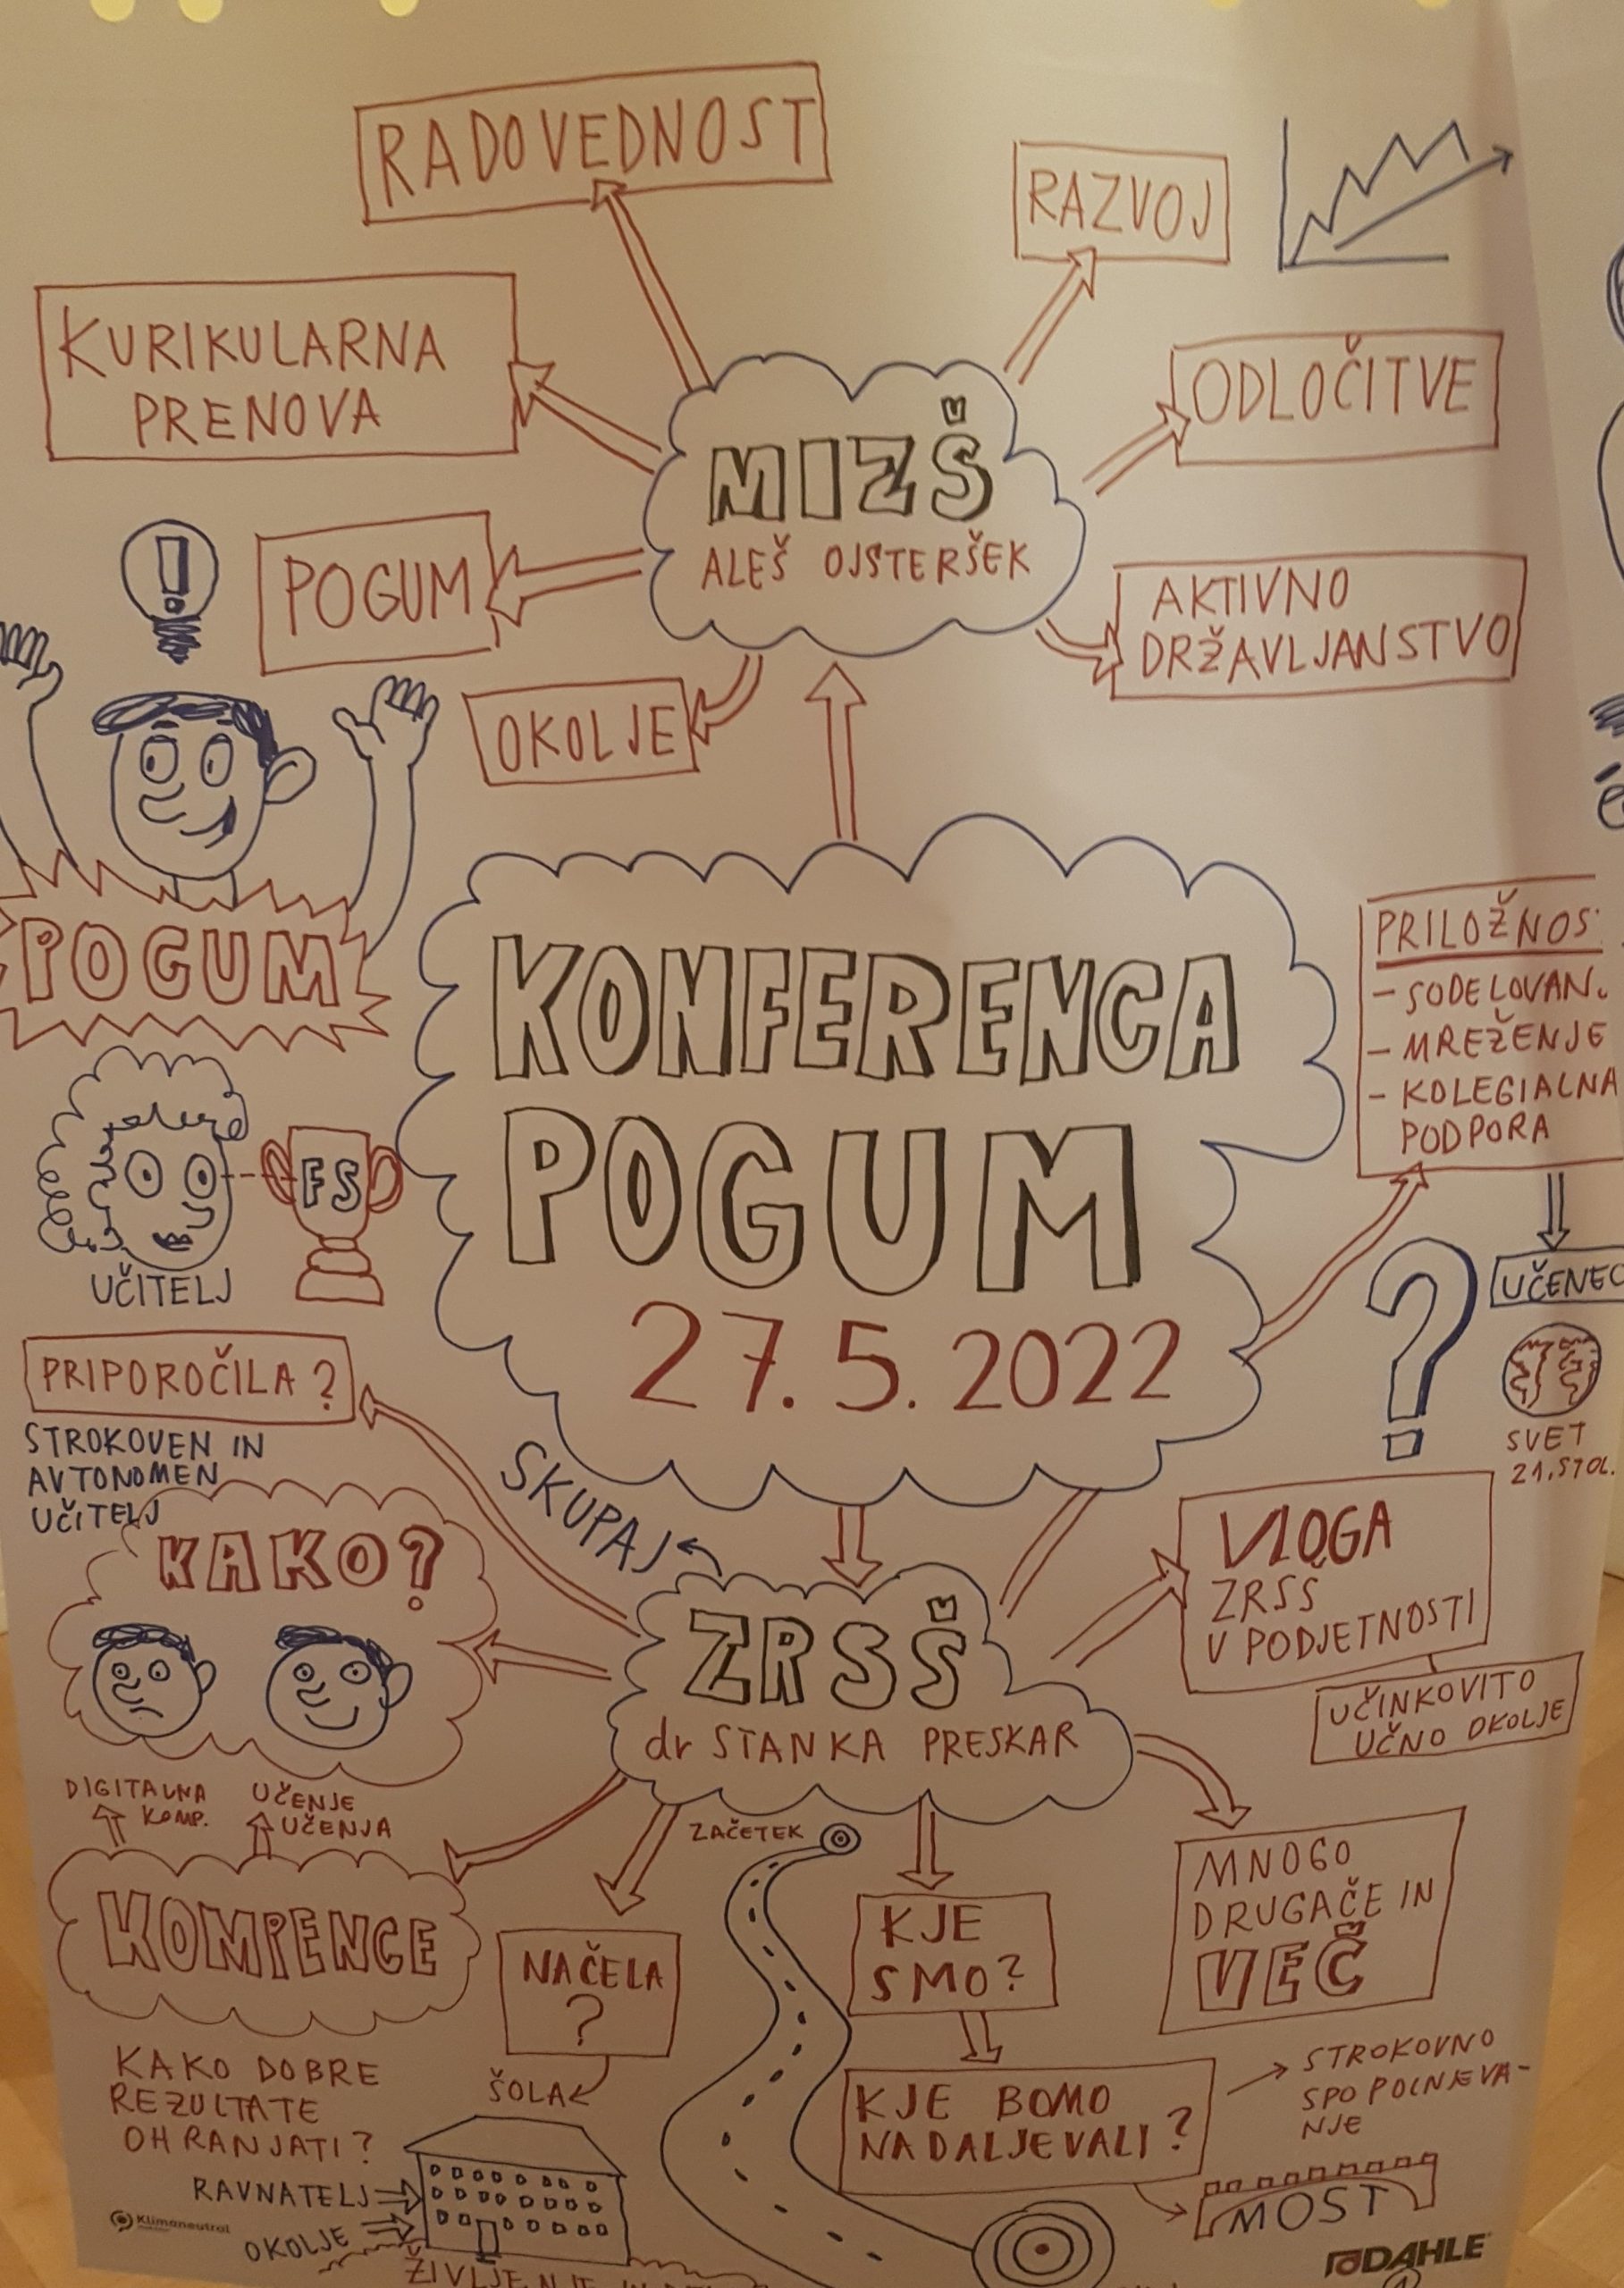 RADOVEDNOST
RAZVOJ
KURIKULARNA
PRENOVA
ODLOČITVE
MIZŠ
ALEŠ OJSTERŠEK
POGUM
AKTIVNO
DRŽAVLJANSTVO
OKOLJE
POGUM
KONFERENCA
POGUM
27.5.2022
PRILOŽNOS
- SODELOVAN
- MREŽENJE
- KOLEGIALNA
PODPORA
FS
UČITELJ
?
UČENEC
SVET
21.STOL.
PRIPOROČILA?
STROKOVEN IN
AVTONOMEN
UČITELJ
SKUPAJ
KAKO?
ZRSŠ
dr STANKA PRESKAR
VLOGA
ZRSŠ
V PODJETNOSTI
UČINKOVITO
UČNO OKOLJE
DIGITALNA
KOMP.
UČENJE
UČENJA
KOMPENCE
ZAČETEK
NAČELA
?
KJE
SMO?
MNOGO
DRUGAČE IN
VEČ
KAKO DOBRE
REZULTATE
OHRANJATI?
ŠOLA
KJE BOMO
NADALJEVALI?
STROKOVNO
SPOPOLNJEVA-
NJE
RAVNATELJ
OKOLJE
MOST
Klimaneutral
DAHLE